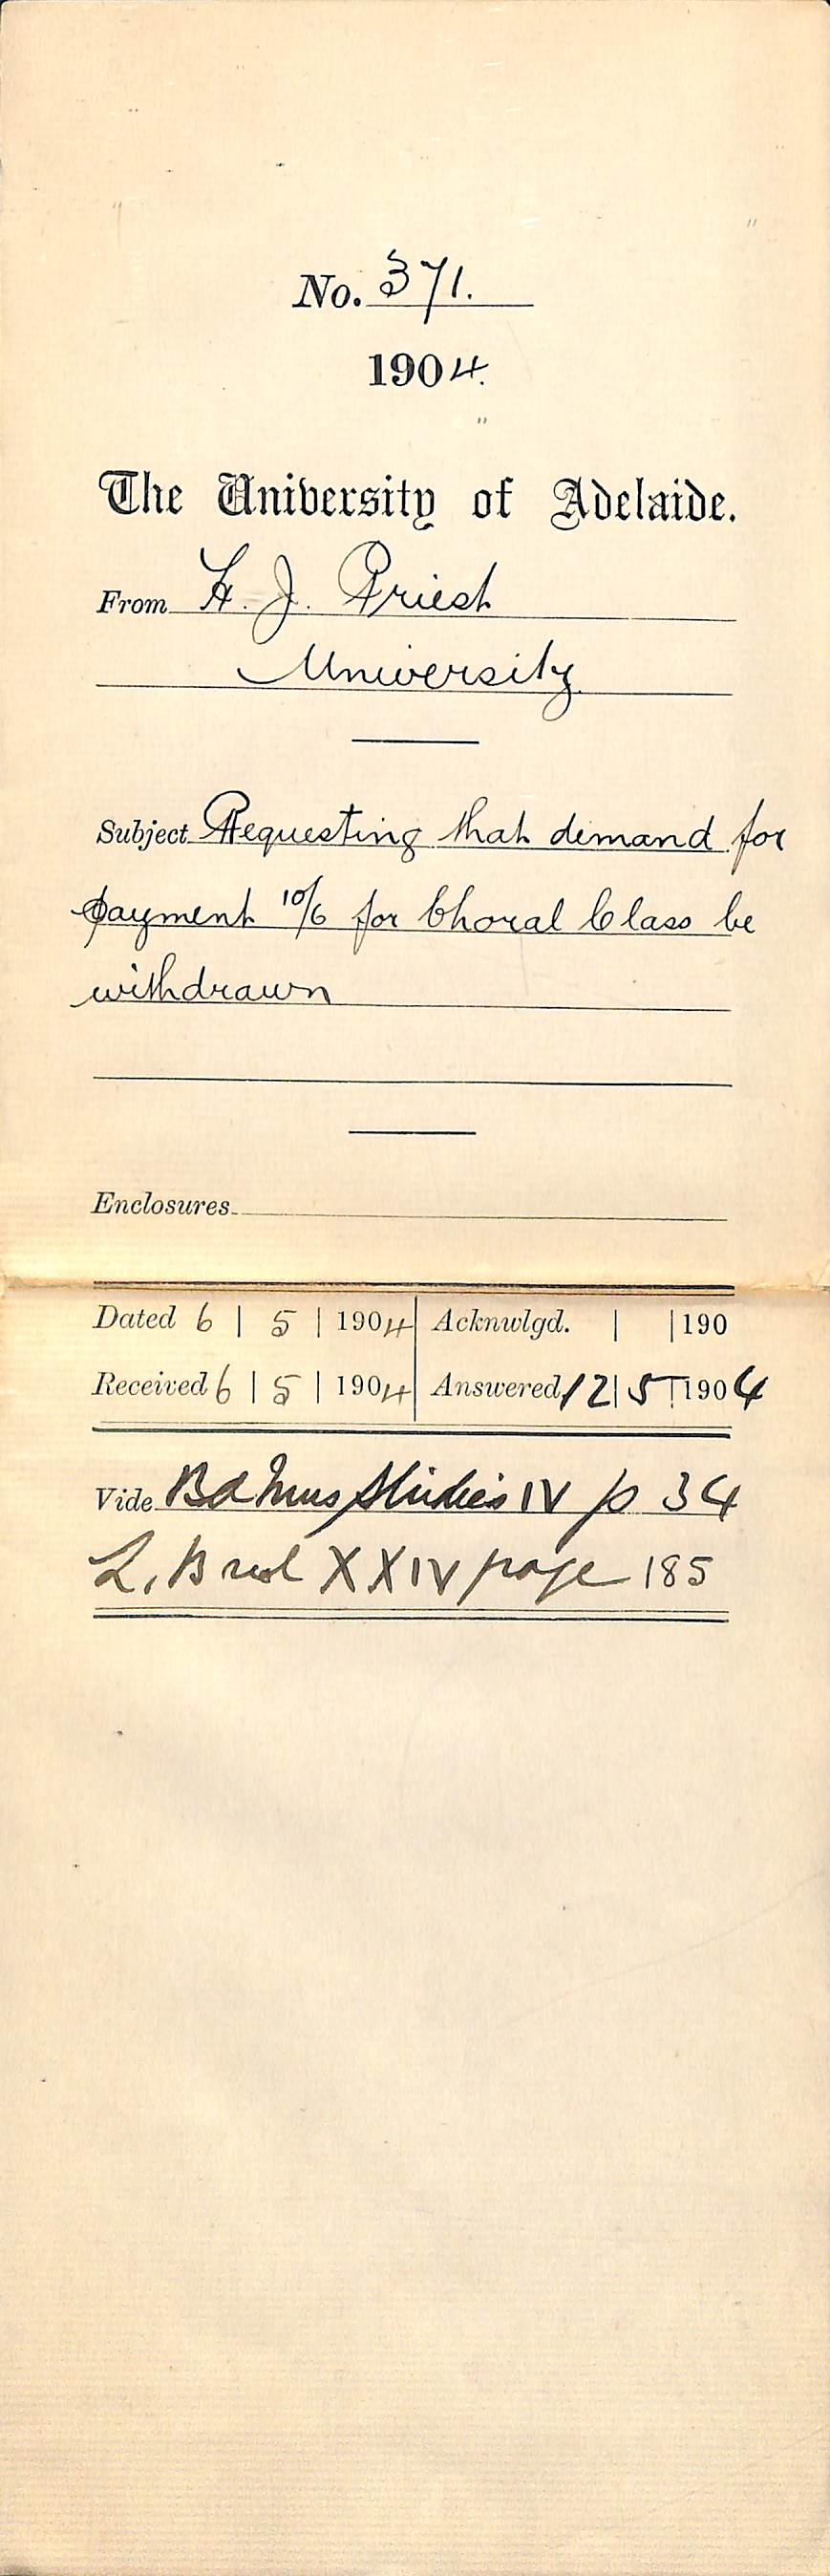 No. 371.
1904.
The University of Adelaide.
From H. J. Priest
University
Subject Requesting that demand for
payment 10/6 for Choral Class be
withdrawn
Enclosures
Dated 6 | 5 | 1904 Acknwlgd. | | 190
Received 6 | 5 | 1904 Answered 12 | 5 | 1904
Vide Bd Mus Studies IV p 34
L. B XXIV page 185